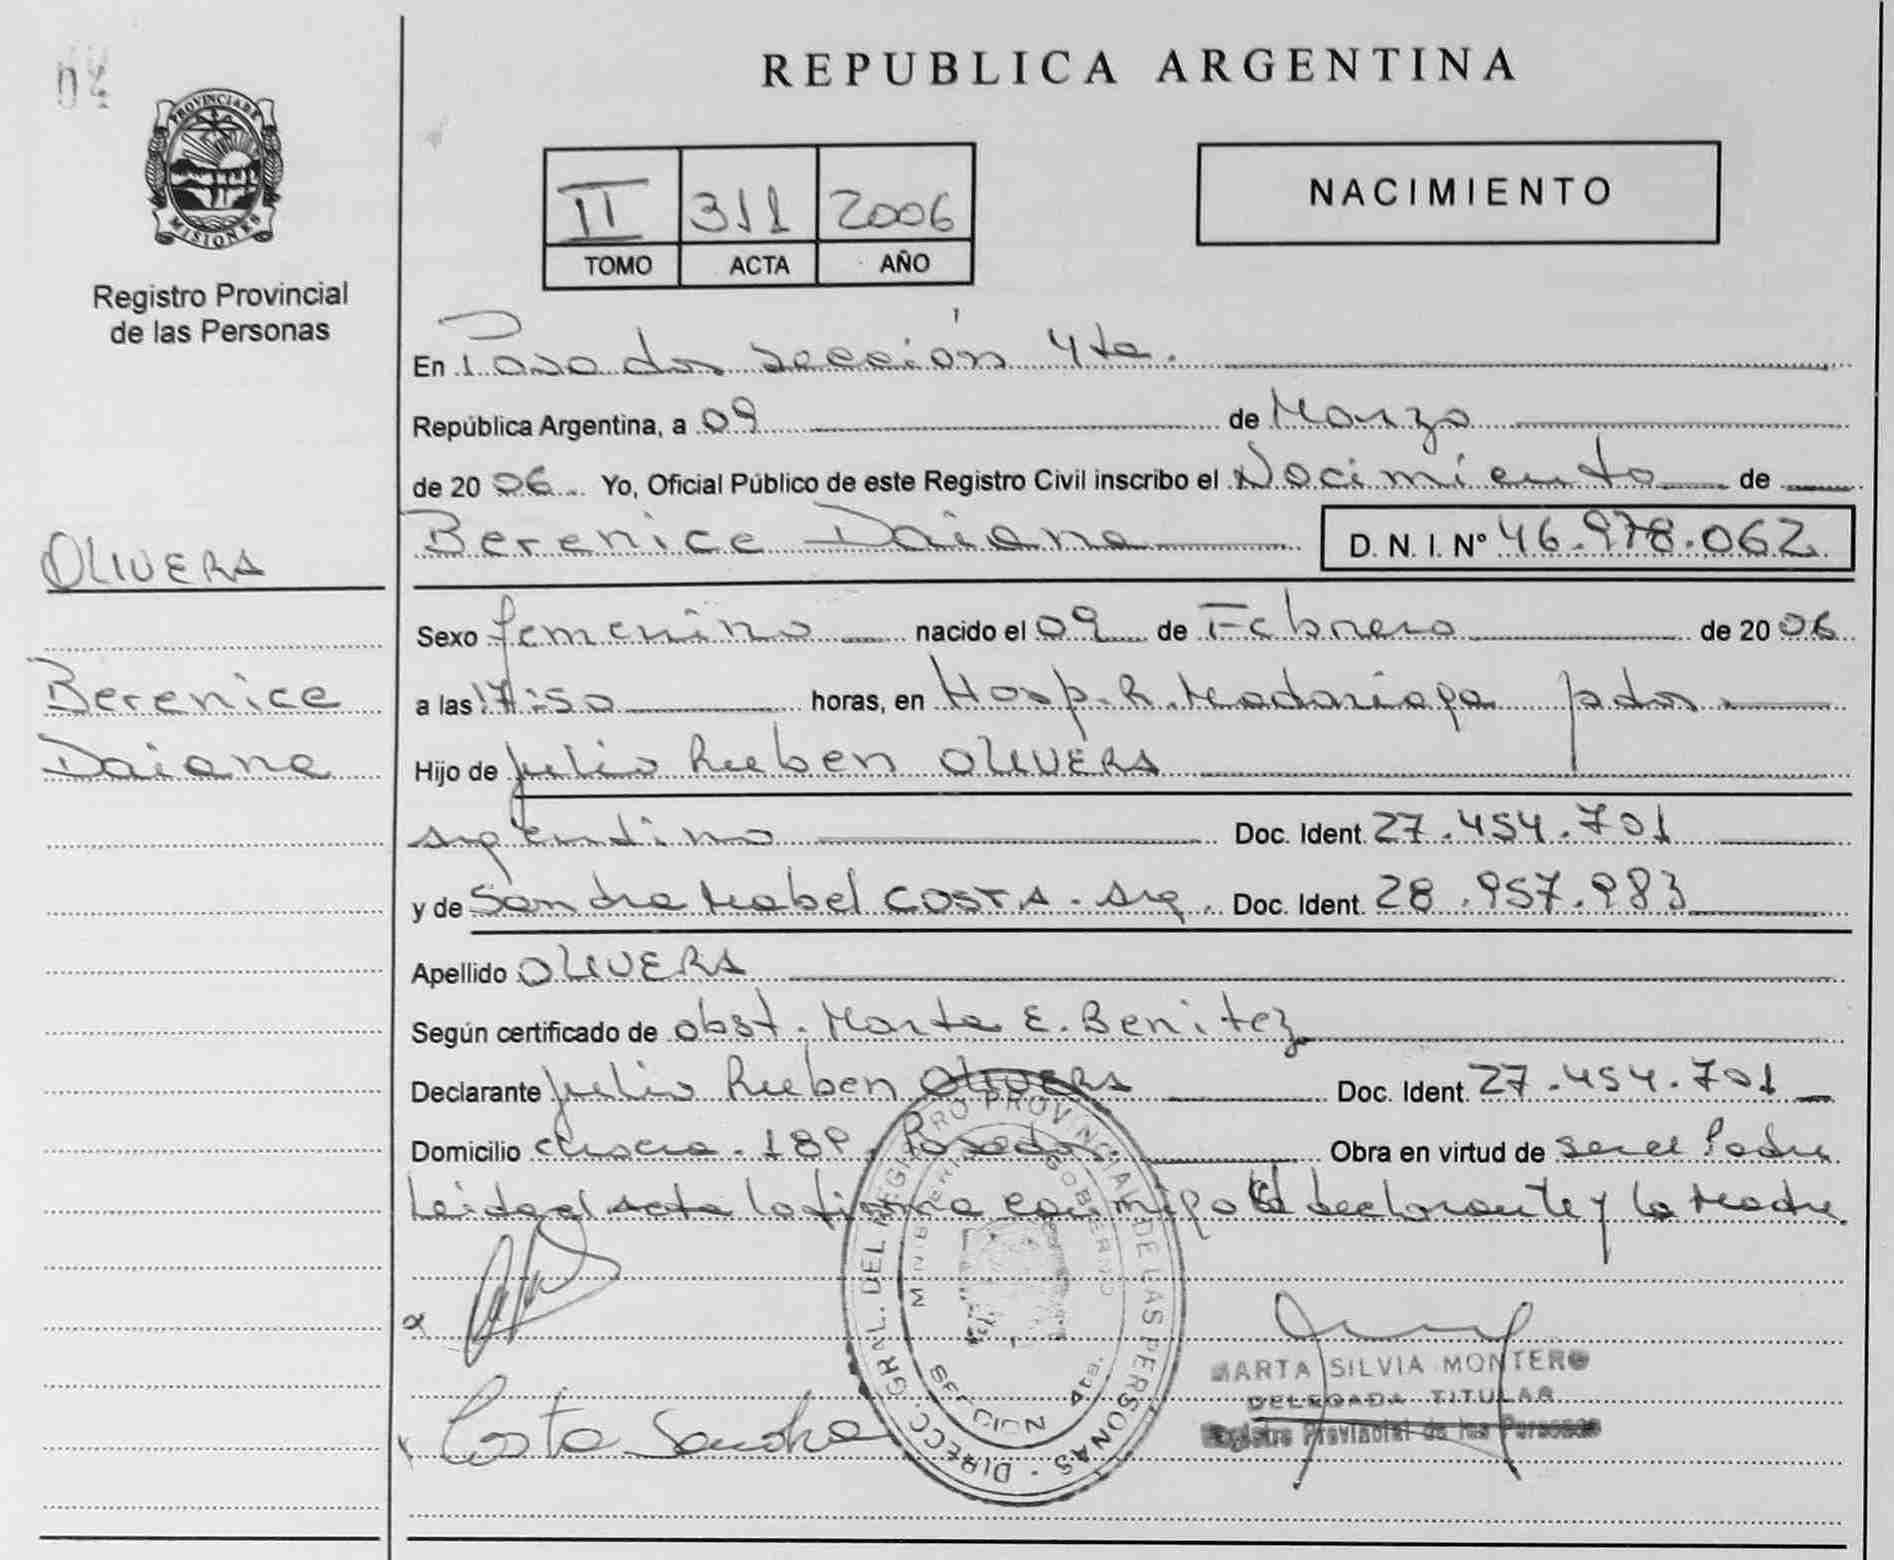 04
PROVINCIA DE
MISIONES
Registro Provincial
de las Personas
OLIVERA
Berenice
Daiana
REPUBLICA ARGENTINA
II 311 2006
TOMO ACTA AÑO
NACIMIENTO
En Posadas sección 4ta.
República Argentina, a 09 de Marzo
de 2006 Yo, Oficial Público de este Registro Civil inscribo el Nacimiento de
Berenice Daiana D. N. I. Nº 46.978.062
Sexo femenino nacido el 09 de Febrero de 2006
a las 17:50 horas, en Hosp. R. Madariaga pdas
Hijo de Julio Ruben OLIVERA
argentino Doc. Ident. 27.454.701
y de Sandra Mabel COSTA. Arg. Doc. Ident. 28.957.983
Apellido OLIVERA
Según certificado de obst. Marta E. Benitez
Declarante Julio Ruben Olivera Doc. Ident. 27.454.701
Domicilio 189 Posadas Obra en virtud de ser el Padre
Leida el acta la firma conmigo el declarante y la Madre
DIRECC. GRAL. DEL REGISTRO PROVINCIAL DE LAS PERSONAS
MINISTERIO GOBIERNO
SECCION 4ta.
Costa Sandra
MARTA SILVIA MONTERO
DELEGADA TITULAR
Registro Provincial de las Personas